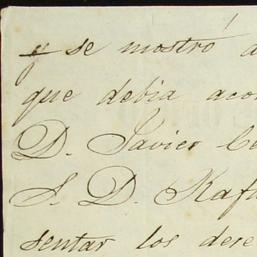 y se mostró a
que debia aco
D. Javier Ce
S. D. Rafa
sentar los dere